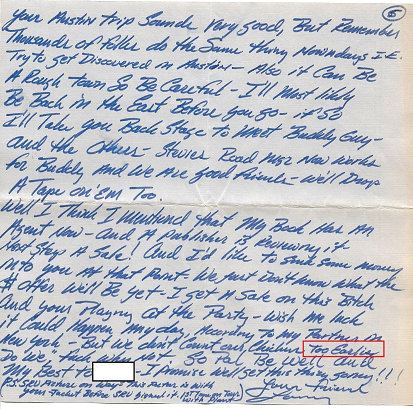 5
Your Austin trip Sounds Very good, But Remember
Thousands of folks do the Same thing Nowadays I.E.
Try to get Discovered in Austin - Also it Can Be
A Rough town So Be Careful - I'll Most likely
Be Back in the East Before you go - if so
I'll Take you Back Stage to Meet "Buddy Guy"
and the Others - Stevies Road Mgr Now works
for Buddy And We Are good Friends - We'll Drop
A Tape on 'Em Too.
Well I Think I Mentioned that My Book Has An
Agent Now - And A Publisher is Reviewing it
Most Step A Sale! And I'd like to Sink Some Money
into you At that Point - We just Don't know What the
$ offer We'll Be yet - I get A Sale on this Bitch
And your Playing at the Party - Wish Me luck
it Could Happen Any day, According to My Partner in
New York - But we don't Count our Chickens Too Earlie
Do We" - Not - So Pal Be Well And
My Best to - I Promise We'll get this thing going!!!
P.S. SRV Picture on Way - This Poster is With
Your Friend
your before SRV Signed it. 1st Tour
With